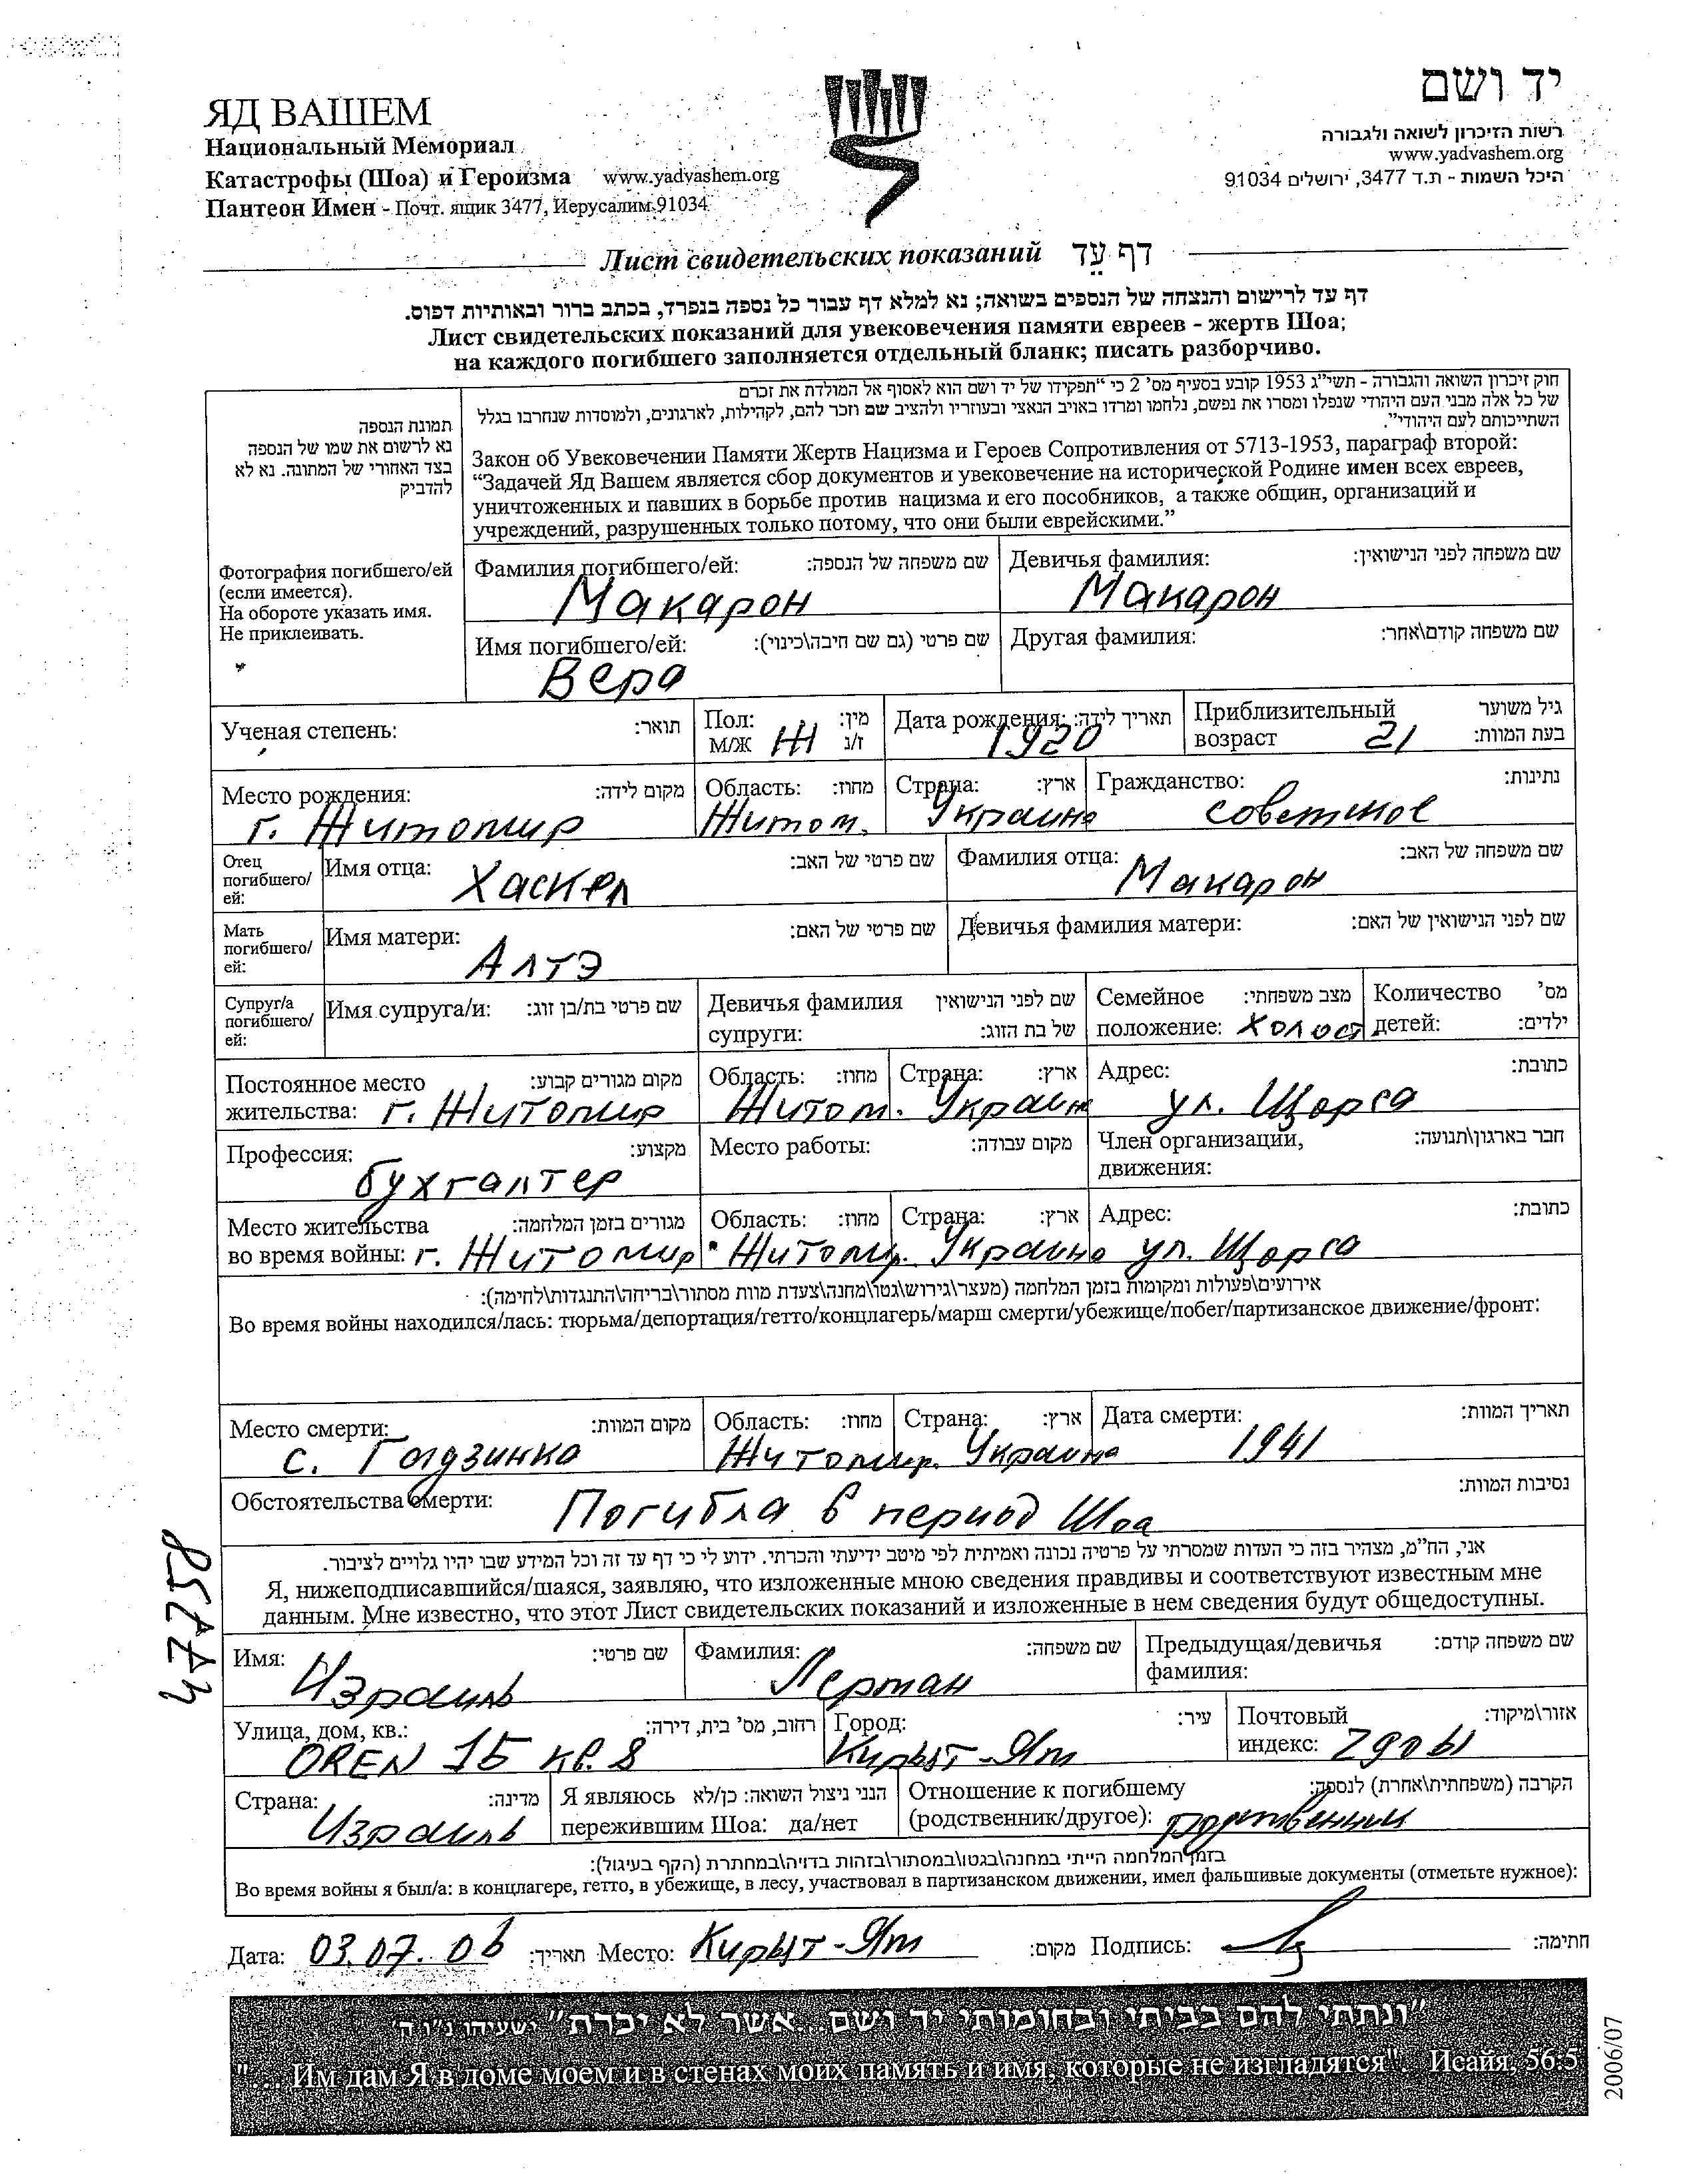 ЯД ВАШЕМ
Национальный Мемориал
Катастрофы (Шоа) и Героизма www.yadvashem.org
Пантеон Имен - Почт. ящик 3477, Иерусалим 91034
יד ושם
רשות הזיכרון לשואה ולגבורה
www.yadvashem.org
היכל השמות - ת.ד 3477, ירושלים 91034
Лист свидетельских показаний דף עֵד
דף עד לרישום והנצחה של הנספים בשואה; נא למלא דף עבור כל נספה בנפרד, בכתב ברור ובאותיות דפוס.
Лист свидетельских показаний для увековечения памяти евреев - жертв Шоа;
на каждого погибшего заполняется отдельный бланк; писать разборчиво.
תמונת הנספה
נא לרשום את שמו של הנספה
בצד האחורי של התמונה. נא לא
להדביק
Фотография погибшего/ей
(если имеется).
На обороте указать имя.
Не приклеивать.
חוק זיכרון השואה והגבורה - תשי"ג 1953 קובע בסעיף מס' 2 כי "תפקידו של יד ושם הוא לאסוף אל המולדת את זכרם
של כל אלה מבני העם היהודי שנפלו ומסרו את נפשם, נלחמו ומרדו באויב הנאצי ובעוזריו ולהציב שם וזכר להם, לקהילות, לארגונים, ולמוסדות שנחרבו בגלל
השתייכותם לעם היהודי".
Закон об Увековечении Памяти Жертв Нацизма и Героев Сопротивления от 5713-1953, параграф второй:
"Задачей Яд Вашем является сбор документов и увековечение на исторической Родине имен всех евреев,
уничтоженных и павших в борьбе против нацизма и его пособников, а также общин, организаций и
учреждений, разрушенных только потому, что они были еврейскими."
Фамилия погибшего/ей: שם משפחה של הנספה: Девичья фамилия: שם משפחה לפני הנישואין:
Макарон Макарон
Имя погибшего/ей: שם פרטי (גם שם חיבה\כינוי): Другая фамилия: שם משפחה קודם\אחר:
Вера
Ученая степень: תואר: Пол: מין: Дата рождения: תאריך לידה: Приблизительный גיל משוער
М/Ж Ж ז/נ 1920 возраст 21 בעת המוות:
Место рождения: מקום לידה: Область: מחוז: Страна: ארץ: Гражданство: נתינות:
г. Житомир Житом. Украина советское
Отец
погибшего/
ей:
Имя отца: שם פרטי של האב: Фамилия отца: שם משפחה של האב:
Хаскел Макарон
Мать
погибшего/
ей:
Имя матери: שם פרטי של האם: Девичья фамилия матери: שם לפני הנישואין של האם:
Алтэ
Супруг/а
погибшего/
ей:
Имя супруга/и: שם פרטי בת/בן זוג: Девичья фамилия שם לפני הנישואין Семейное מצב משפחתי: Количество מס'
супруги: של בת הזוג: положение: холост детей: ילדים:
Постоянное место מקום מגורים קבוע: Область: מחוז: Страна: ארץ: Адрес: כתובת:
жительства: г. Житомир Житом. Украин ул. Щорса
Профессия: מקצוע: Место работы: מקום עבודה: Член организации, חבר בארגון\תנועה:
бухгалтер движения:
Место жительства מגורים בזמן המלחמה: Область: מחוז: Страна: ארץ: Адрес: כתובת:
во время войны: г. Житомир Житомир. Украина ул. Щорса
אירועים\פעולות ומקומות בזמן המלחמה (מעצר\גירוש\גטו\מחנה\צעדת מוות מסתור\בריחה\התנגדות\לחימה):
Во время войны находился/лась: тюрьма/депортация/гетто/концлагерь/марш смерти/убежище/побег/партизанское движение/фронт:
Место смерти: מקום המוות: Область: מחוז: Страна: ארץ: Дата смерти: תאריך המוות:
с. Гадзинка Житомир. Украина 1941
Обстоятельства смерти: Погибла в период Шоа נסיבות המוות:
אני, הח"מ, מצהיר בזה כי העדות שמסרתי על פרטיה נכונה ואמיתית לפי מיטב ידיעתי והכרתי. ידוע לי כי דף עד זה וכל המידע שבו יהיו גלויים לציבור.
Я, нижеподписавшийся/шаяся, заявляю, что изложенные мною сведения правдивы и соответствуют известным мне
данным. Мне известно, что этот Лист свидетельских показаний и изложенные в нем сведения будут общедоступны.
Имя: שם פרטי: Фамилия: שם משפחה: Предыдущая/девичья שם משפחה קודם:
Израиль Лерман фамилия:
Улица, дом, кв.: רחוב, מס' בית, דירה: Город: עיר: Почтовый אזור\מיקוד:
OREN 15 кв. 8 Кирыт-Ям индекс: 29061
Страна: מדינה: Я являюсь הנני ניצול השואה: כן/לא Отношение к погибшему הקרבה (משפחתית\אחרת) לנספה:
Израиль пережившим Шоа: да/нет (родственник/другое): родственник
בזמן המלחמה הייתי במחנה\בגטו\במסתור\בזהות בדויה\במחתרת (הקף בעיגול):
Во время войны я был/а: в концлагере, гетто, в убежище, в лесу, участвовал в партизанском движении, имел фальшивые документы (отметьте нужное):
Дата: 03.07.06 תאריך: Место: Кирыт-Ям מקום: Подпись: חתימה:
"ונתתי להם בביתי ובחומותי יד ושם...אשר לא יכרת" ישעיהו נ"ו ה'
"... Им дам Я в доме моем и в стенах моих память и имя, которые не изгладятся". Исайя, 56:5
2006/07